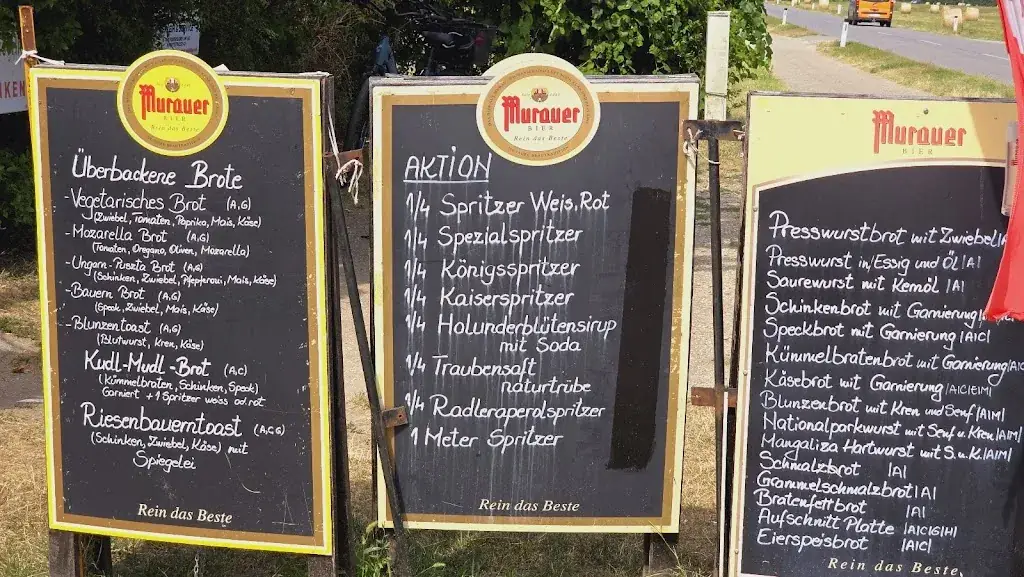 Murauer
BIER
Rein das Beste
Überbackene Brote
- Vegetarisches Brot (A,G)
(Zwiebel, Tomaten, Paprika, Mais, Käse)
- Mozarella Brot (A,G)
(Tomaten, Oregano, Oliven, Mozarella)
- Ungarn-Puszta Brot (A,G)
(Schinken, Zwiebel, Pfefferoni, Mais, Käse)
- Bauern Brot (A,G)
(Speck, Zwiebel, Mais, Käse)
- Blunzentoast (A,G)
(Blutwurst, Kren, Käse)
Kudl-Mudl-Brot (A,C)
(Kümmelbraten, Schinken, Speck)
Garniert + 1 Spritzer weiss od. rot
Riesenbauerntoast (A,C,G)
(Schinken, Zwiebel, Käse) mit
Spiegelei
Rein das Beste
Murauer
BIER
Rein das Beste
AKTION
1/4 Spritzer Weis, Rot
1/4 Spezialspritzer
1/4 Königsspritzer
1/4 Kaiserspritzer
1/4 Holunderblütensirup
mit Soda
1/4 Traubensaft
naturtrübe
1/4 Radleraperolspritzer
1 Meter Spritzer
Rein das Beste
Murauer
BIER
Presswurstbrot mit Zwiebel
Presswurst in/Essig und Öl |A|
Saurewurst mit Kernöl |A|
Schinkenbrot mit Garnierung
Speckbrot mit Garnierung |A|C|
Kümmelbratenbrot mit Garnierung |A|C
Käsebrot mit Garnierung |A|C|E|M|
Blunzenbrot mit Kren und Senf |A|M|
Nationalparkwurst mit Senf u. Kren |A|M|
Mangaliza Hartwurst mit S.u.K. |A|M|
Schmalzbrot |A|
Grammelschmalzbrot |A|
Bratenfettbrot |A|
Aufschnitt Platte |A|C|G|H|
Eierspeisbrot |A|C|
Rein das Beste